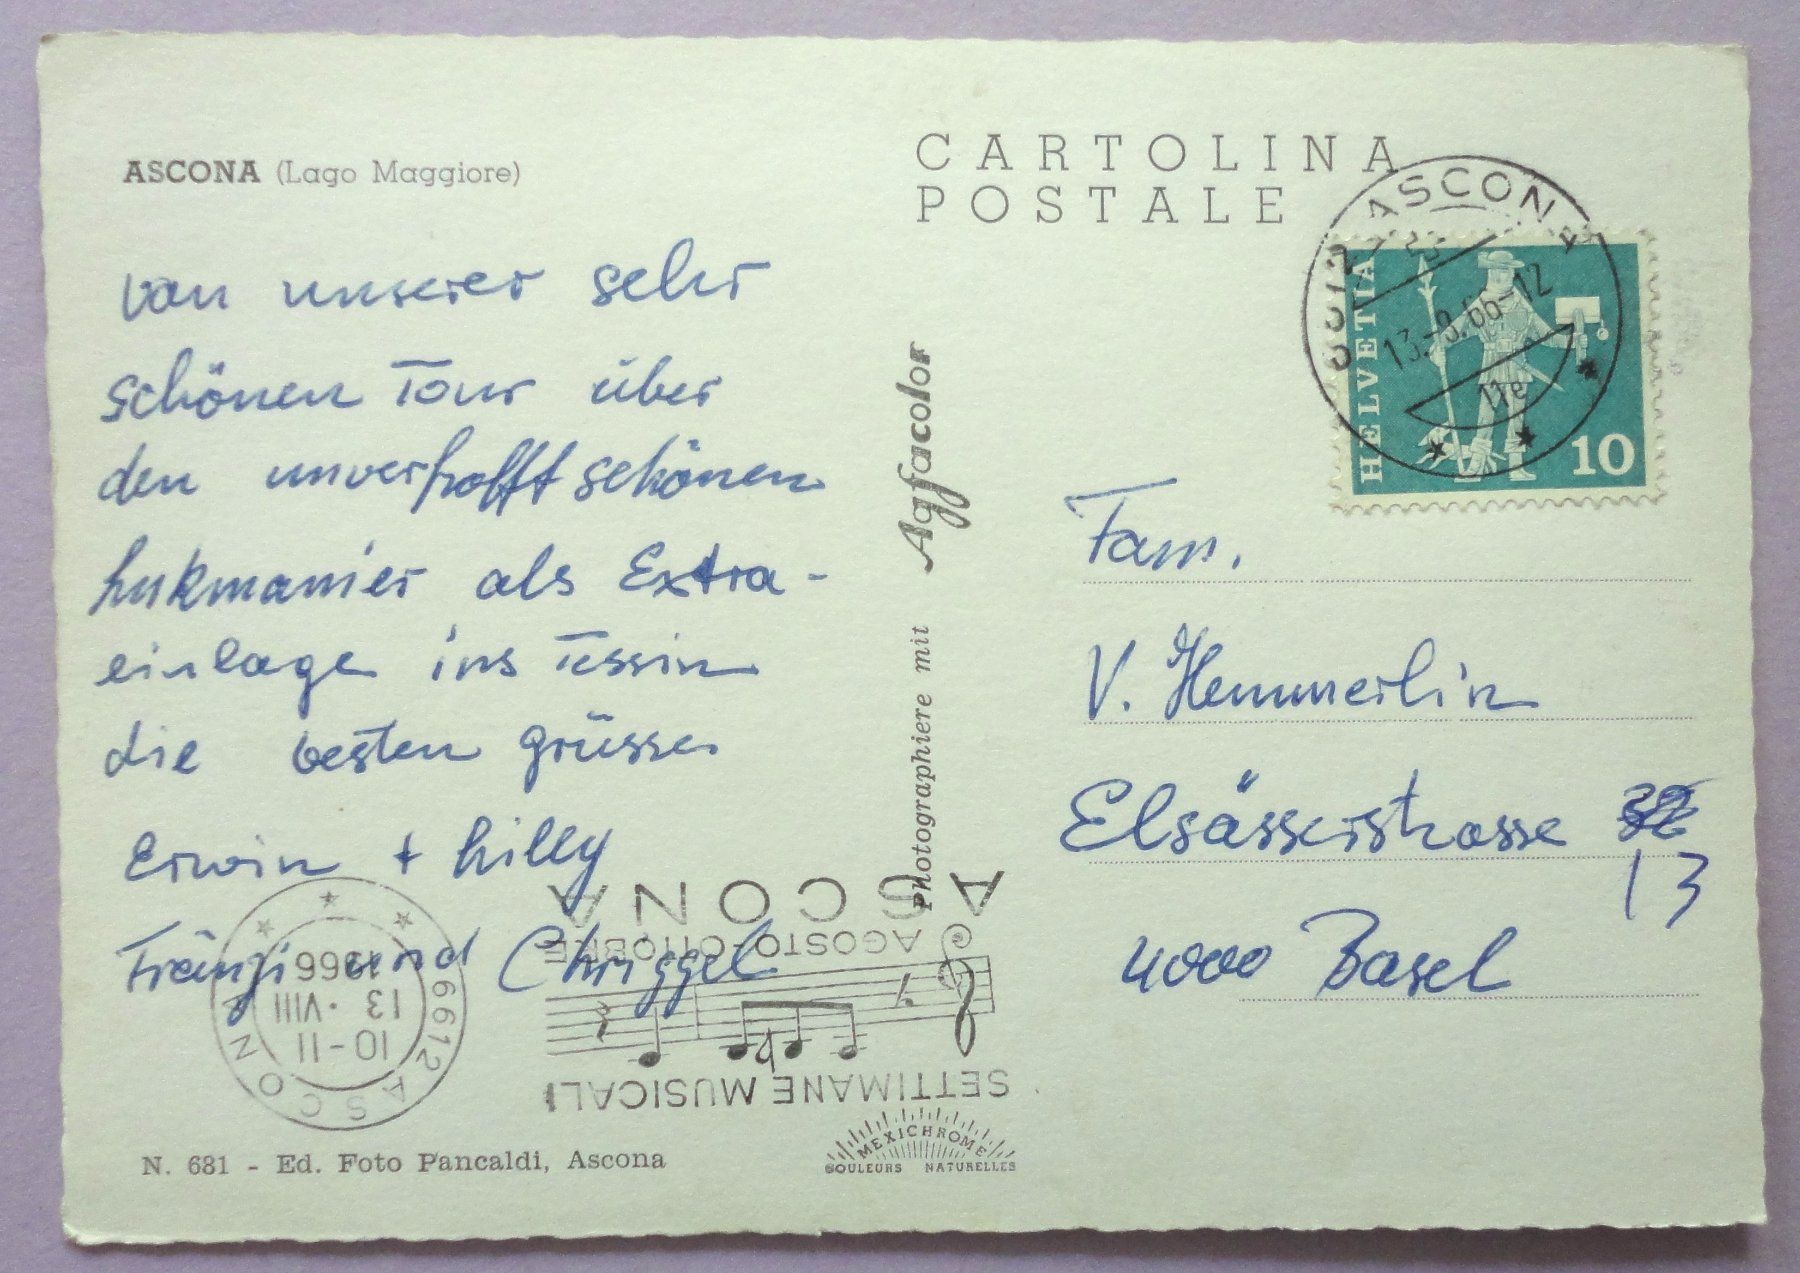 ASCONA (Lago Maggiore)
CARTOLINA
POSTALE
von unserer sehr
schönen Tour über
den unverhofft schönen
Lukmanier als Extra-
einlage ins Tessin
die besten Grüsse
Erwin + Lilly
Fränzi und Chriggel
Photographiere mit Agfacolor
6612 ASCONA
13.-8.66-12
11e
HELVETIA
10
Fam.
V. Hemmerlin
Elsässerstrasse
13
4000 Basel
6612 ASCONA
10-11
13.VIII
1966
SETTIMANE MUSICALI
AGOSTO-OTTOBRE
ASCONA
MEXICHROME
COULEURS NATURELLES
N. 681 - Ed. Foto Pancaldi, Ascona